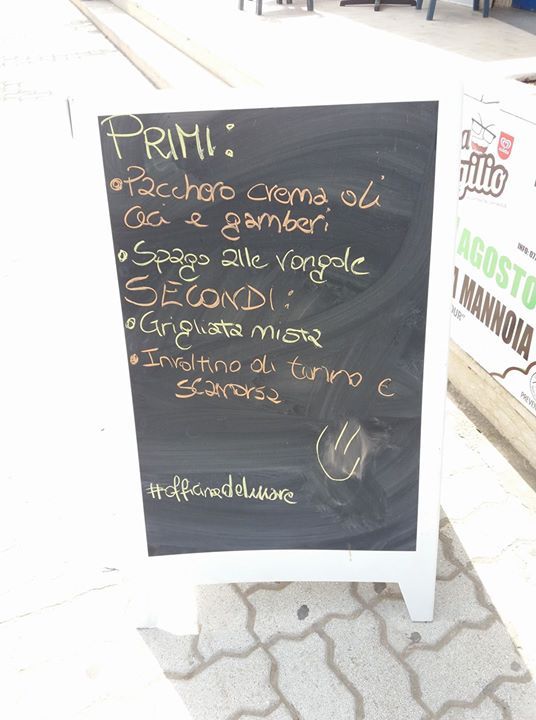 PRIMI:
Pacchero crema di
ceci e gamberi
Spago alle vongole
SECONDI:
Grigliata mista
Involtino di tunno e
scamorsa
#officinadelmare
AGOSTO
MANNOIA